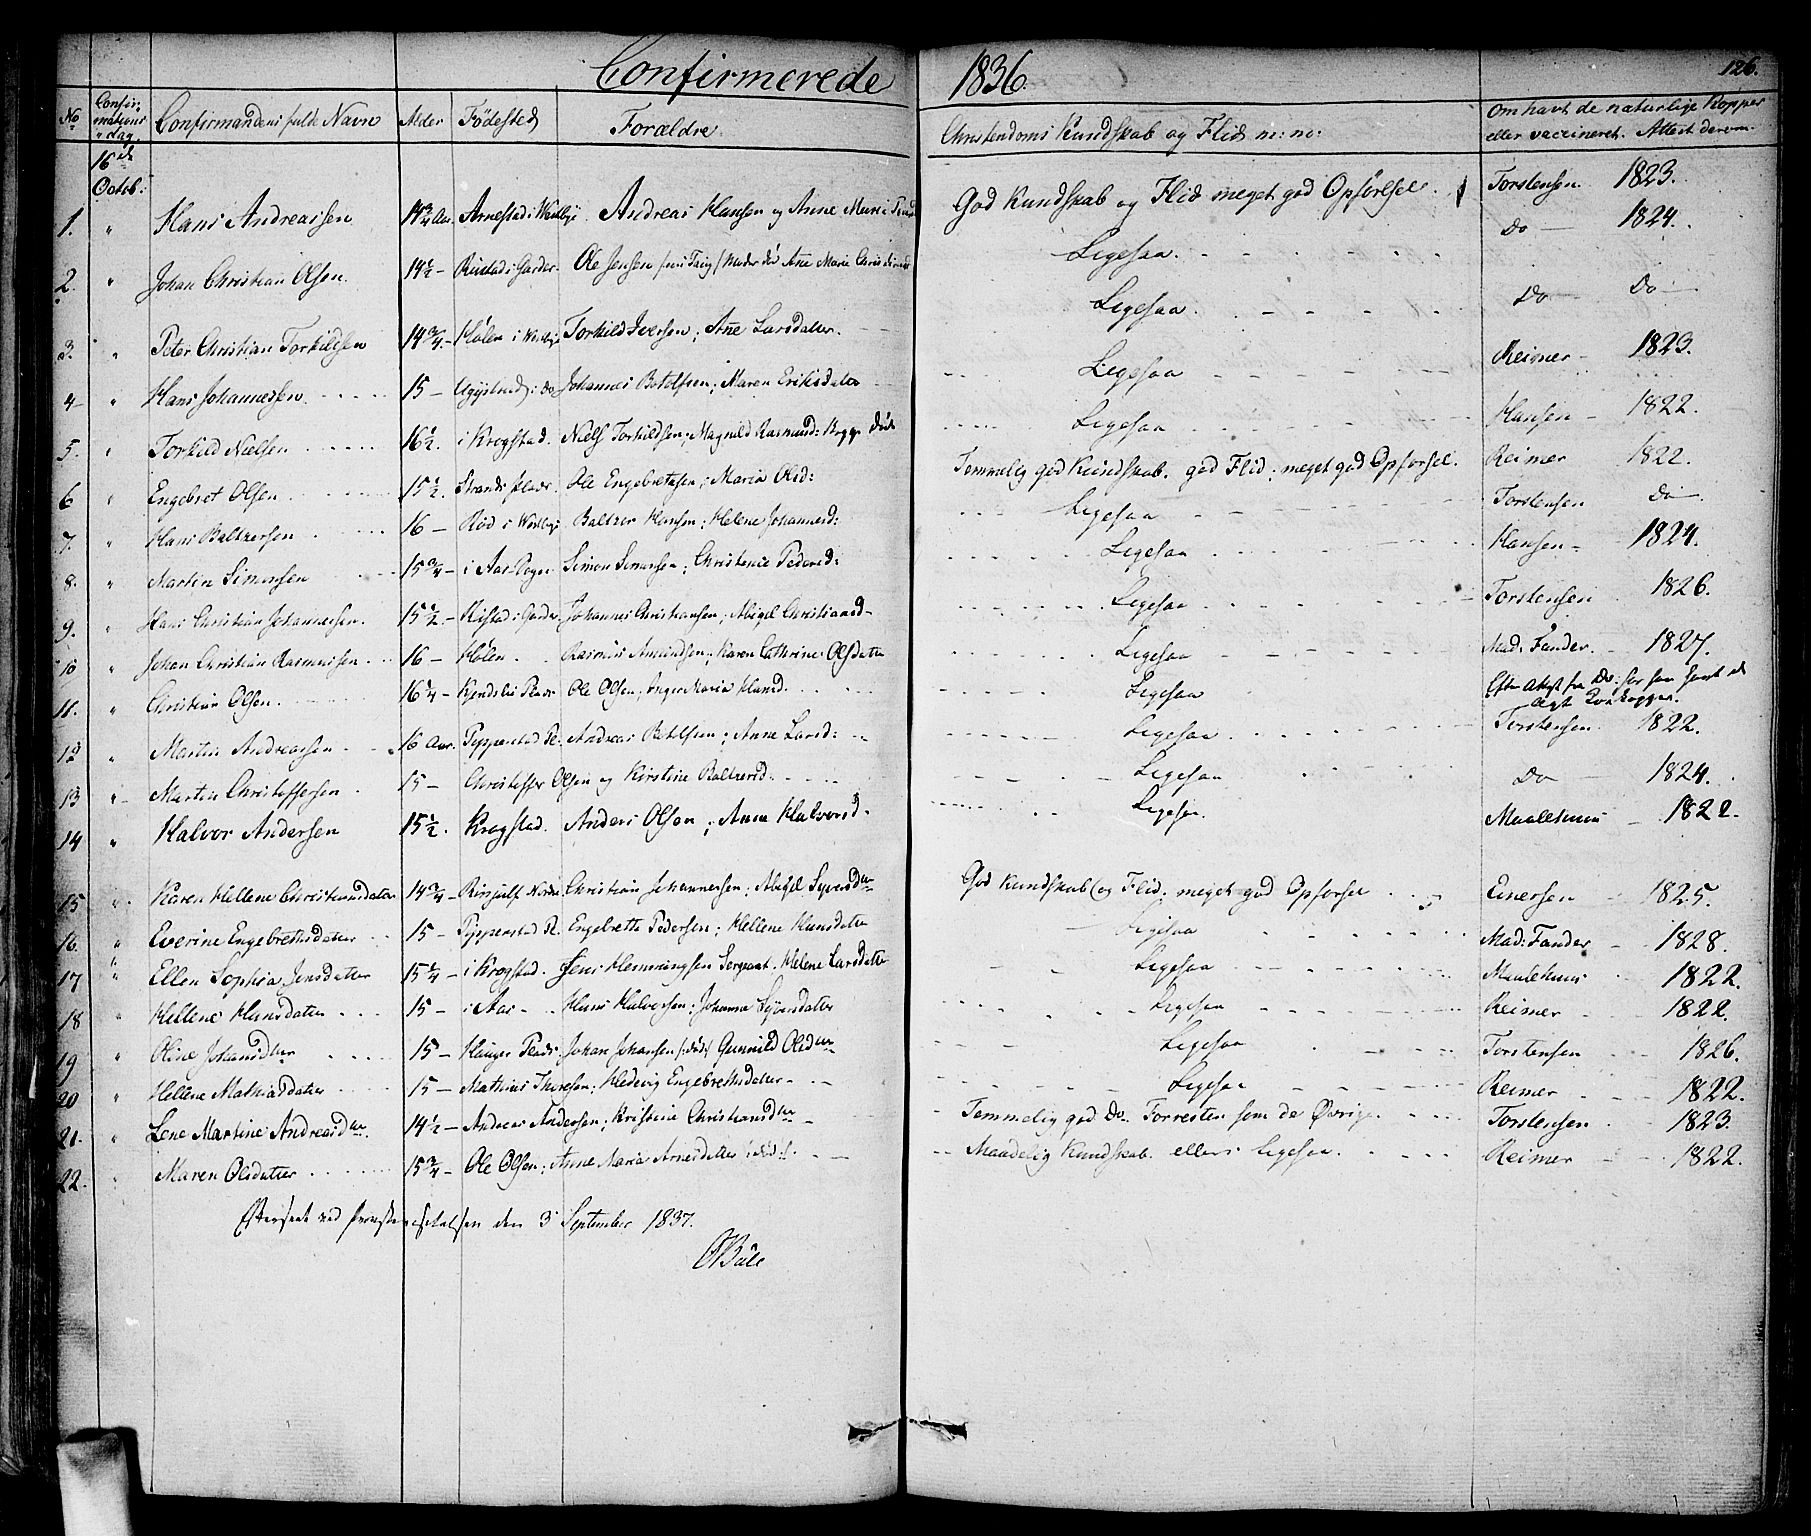 Confirmerede 1836. 126.
No Confirmations dag Confirmandens fulde Navn Alder Fødested Forældre Christendoms Kundskab og Flid m: m: Om havt de naturlige Kopper eller vaccineret. Attest derom.
16de Octob:
1. " Hans Andreassen 14 3/4 Aar. Arnestad i Westbye Andreas Hansen og Anne Marie God Kundskab og Flid meget god Opførelse. Torstensen 1823.
2. " Johan Christian Olsen. 14 1/2 - Garder. Ole Jensen Ligesaa. Do 1824.
3. " Peter Christian Torkildsen 14 3/4 - Hølen i Torkild Iversen; Ane Larsdatter. Ligesaa. Do Do
4 " Hans Johannessen 15 - i Do Johannes Botolfsen; Maren Eriksdatter Ligesaa Reimer 1823.
5. " Torkild Nielsen 16 1/2. i Krogstad. Niels Torkildsen; Magnild Rasmusd: Ligesaa Hansen 1822.
6 " Engebret Olsen 15 1/2. Ole Engebretsen; Maria Olsd: Temmelig god Kundskab. god Flid. meget god Opførsel. Reimer 1822.
7. " Hans Baltzersen 16 - Rød i Westbye Baltzer Hansen; Helene Johannesd: Ligesaa Torstensen Do
8. " Martin Simensen 15 3/4 - i Aas Simon Simensen; Christence Pedersd: Ligesaa Hansen 1824.
9. " Hans Christian Johannessen. 15 1/2. Garder Johannes Christiansen; Abigel Christiansd Ligesaa Torstensen 1826.
10 " Johan Christian Rasmussen 16 - Hølen. Rasmus Amundsen; Karen Cathrine Olsdatter Ligesaa Mad: Fander. 1827.
11. " Christian Olsen. 16 1/4 - Ole Olsen; Inger Maria Hansd. Ligesaa Efter Attest fra Do: har han havt de
12 " Martin Andreassen 16 Aar. Pepperstad Andreas Botolfsen; Anne Larsd: Ligesaa Torstensen 1822.
13 " Martin Christoffersen 15 - Christoffer Olsen og Kirstine Baltzersd: Ligesaa Do 1824.
14 " Halvor Andersen 15 1/2. Krogstad. Anders Olsen; Anne Halvorsd. Ligesaa. 1822.
15 " Karen Hellene Christiansdatter 14 3/4 - Christian Johannessen; Abigel Syversdtr God Kundskab og Flid. meget god Opførsel Einersen 1825.
16 " Everine Engebretsdatter 15 - Pepperstad Engebrette Pedersen; Hellene Hansdatter Ligesaa Mad: Fander 1828.
17 " Ellen Sophia Jensdatter 15 1/4 - i Krogstad. Jens Hemmingsen Sergeant. Helene Larsdatter Ligesaa 1822.
18 " Hellene Hansdatter 15 - i Aas Hans Halvorsen; Johanna Syversdatter Ligesaa Reimer 1822.
19 " Oline Johansdtr 15 - Johan Johansen Gunnild Olsdtr Ligesaa Torstensen 1826.
20 " Hellene Mathiasdatter 15 - Mathias Thoresen; Hedevig Engebretsdatter Ligesaa Reimer 1822.
21. " Lene Martine Andreasdtr. 14 1/2 - Andreas Andersen; Kristine Christiansdtr Temmelig god Do. Forresten som de Øvrige Torstensen 1823.
22. " Maren Olsdatter 15 3/4 - Ole Olsen; Anne Maria Arnesdatter Maadelig Kundskab. ellers ligesaa. Reimer 1822.
Efterseet ved den 3 September 1837.